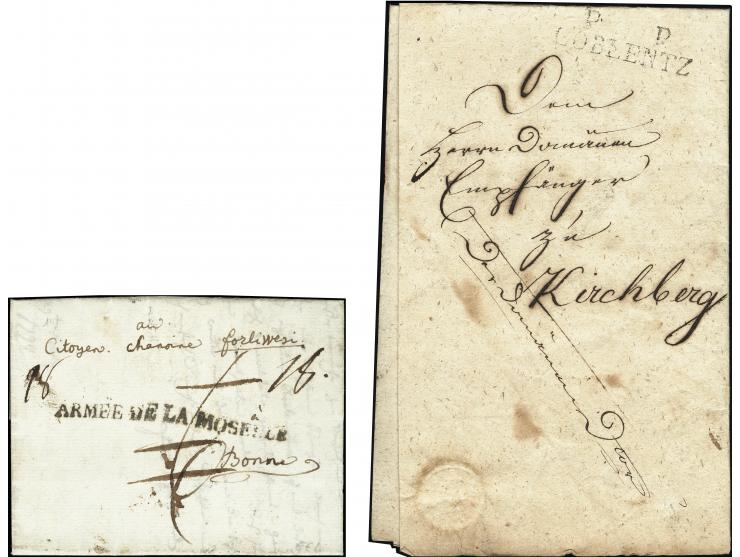 au
Citoyen chanoine forliwesi
18 18.
ARMÉE DE LA MOSELLE
à
Bonne
P. P.
COBLENTZ
Dem
Herrn Domänen
Empfänger
zu
Kirchberg